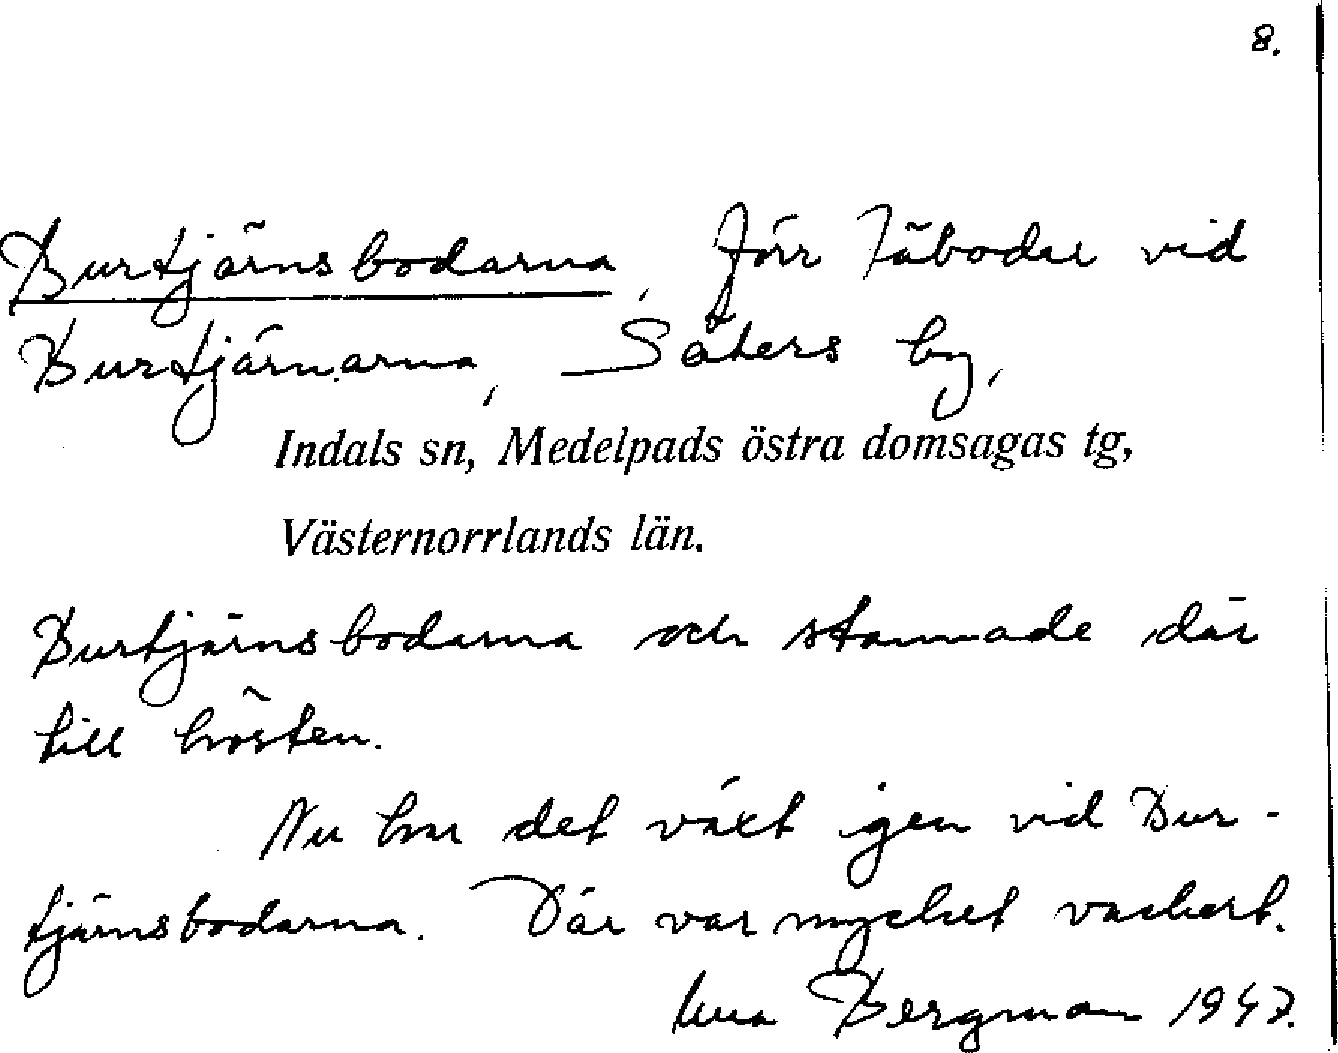 8.
Burtjärnsbodarna, förr fäbodar vid
Burtjärnarna, Säters by,
Indals sn, Medelpads östra domsagas tg,
Västernorrlands län.
Burtjärnsbodarna och stannade där
till hösten.
Nu har det växt igen vid Bur-
tjärnsbodarna. Där var mycket vackert.
Bergman 1947.